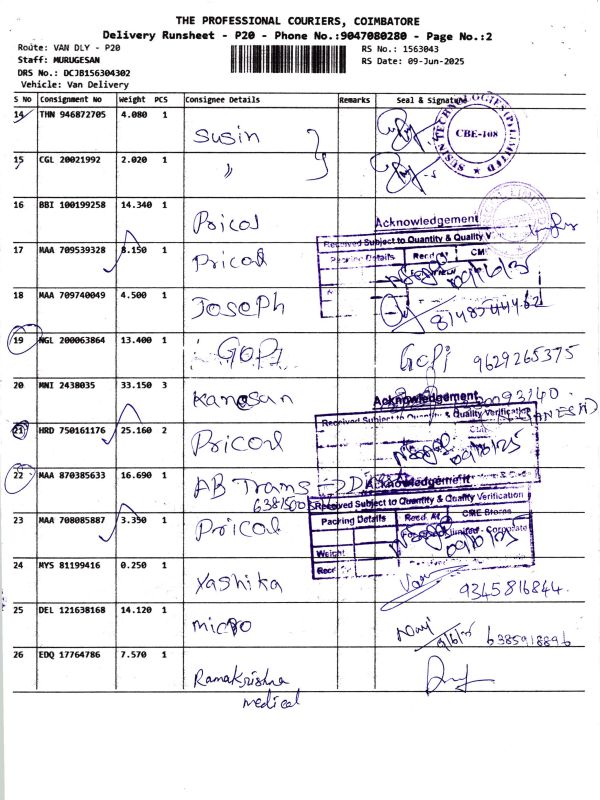 THE PROFESSIONAL COURIERS, COIMBATORE
Delivery Runsheet - P20 - Phone No.:9047080280 - Page No.:2
Route: VAN DLY - P20
RS No.: 1563043
Staff: MURUGESAN
RS Date: 09-Jun-2025
DRS No.: DCJB156304302
Vehicle: Van Delivery
S No Consignment No Weight PCS Consignee Details Remarks Seal & Signature
14 THN 946872705 4.080 1 Susin
SUSIN TECHNOLOGIES (P) LIMITED CBE-108
15 CGL 20021992 2.020 1 "
16 BBI 100199258 14.340 1 Pricol
Acknowledgement
Received Subject to Quantity & Quality
17 MAA 709539328 8.150 1 Pricol
Packing Details Recd. At
18 MAA 709740049 4.500 1 Joseph
19 NGL 200063864 13.400 1 GOPI Gopi 9629265375
20 MNI 2438035 33.150 3 Kanesan
Acknowledgement
Received Subject to Quantity & Quality Verification
GANESH
21 HRD 750161176 25.160 2 Pricol
22 MAA 870385633 16.690 1 AB Trans
Acknowledgement
Received Subject to Quantity & Quality Verification
Packing Details Recd. At CME Stores
Limited - Corporate
Weight
23 MAA 708085887 3.350 1 Pricol
24 MYS 81199416 0.250 1 Yashika 9345816844
25 DEL 121638168 14.120 1 micro 6385918896
26 EDQ 17764786 7.570 1 Ramakrishna
medical